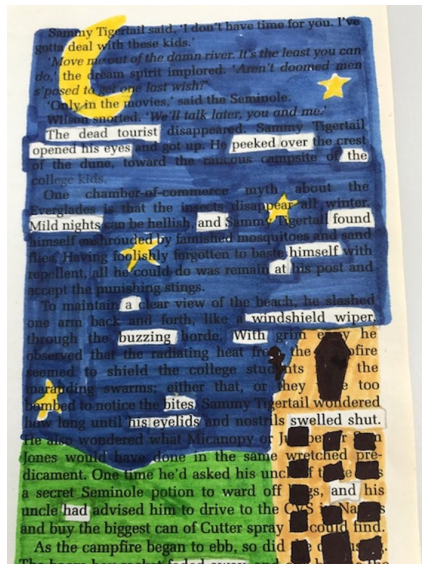 Sammy Tigertail said, 'I don't have time for you. I've
gotta deal with these kids.'
'Move me out of the damn river. It's the least you can
do,' the dream spirit implored. 'Aren't doomed men
s'posed to get one last wish?'
'Only in the movies,' said the Seminole.
Wilson snorted. 'We'll talk later, you and me.'
The dead tourist disappeared. Sammy Tigertail
opened his eyes and got up. He peeked over the crest
of the dune, toward the raucous campsite of the
college kids.
One chamber-of-commerce myth about the
Everglades is that the insects disappear all winter.
Mild nights can be hellish, and Sammy Tigertail found
himself enshrouded by famished mosquitoes and sand
flies. Having foolishly forgotten to baste himself with
repellent, all he could do was remain at his post and
accept the punishing stings.
To maintain a clear view of the beach, he slashed
one arm back and forth, like a windshield wiper,
through the buzzing horde. With grim envy he
observed that the radiating heat from the fire
seemed to shield the college students the
marauding swarms; either that, or they too
bombed to notice the bites. Sammy Tigertail wondered
how long until his eyelids and nostrils swelled shut.
He also wondered what Micanopy or Sam
Jones would have done in the same wretched pre-
dicament. One time he'd asked his uncle if
a secret Seminole potion to ward off bugs, and his
had advised him to drive to the CVS in Naples
and buy the biggest can of Cutter spray could find.
As the campfire began to ebb, so did
The boom box